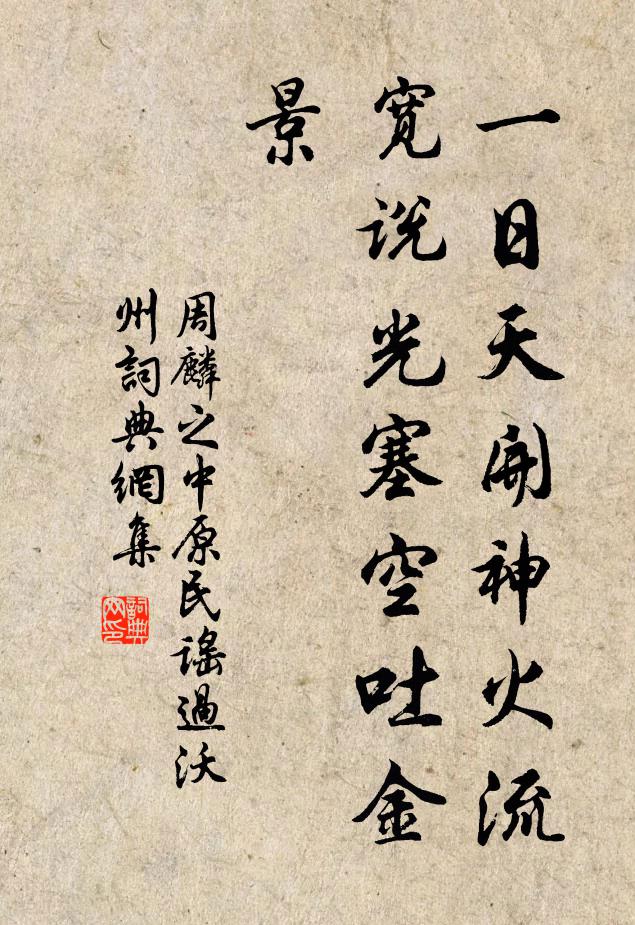 一日天開神火流
寬说光塞空吐金
景
周麟之中原民謠過沃
州詞典網集
詞典
网印